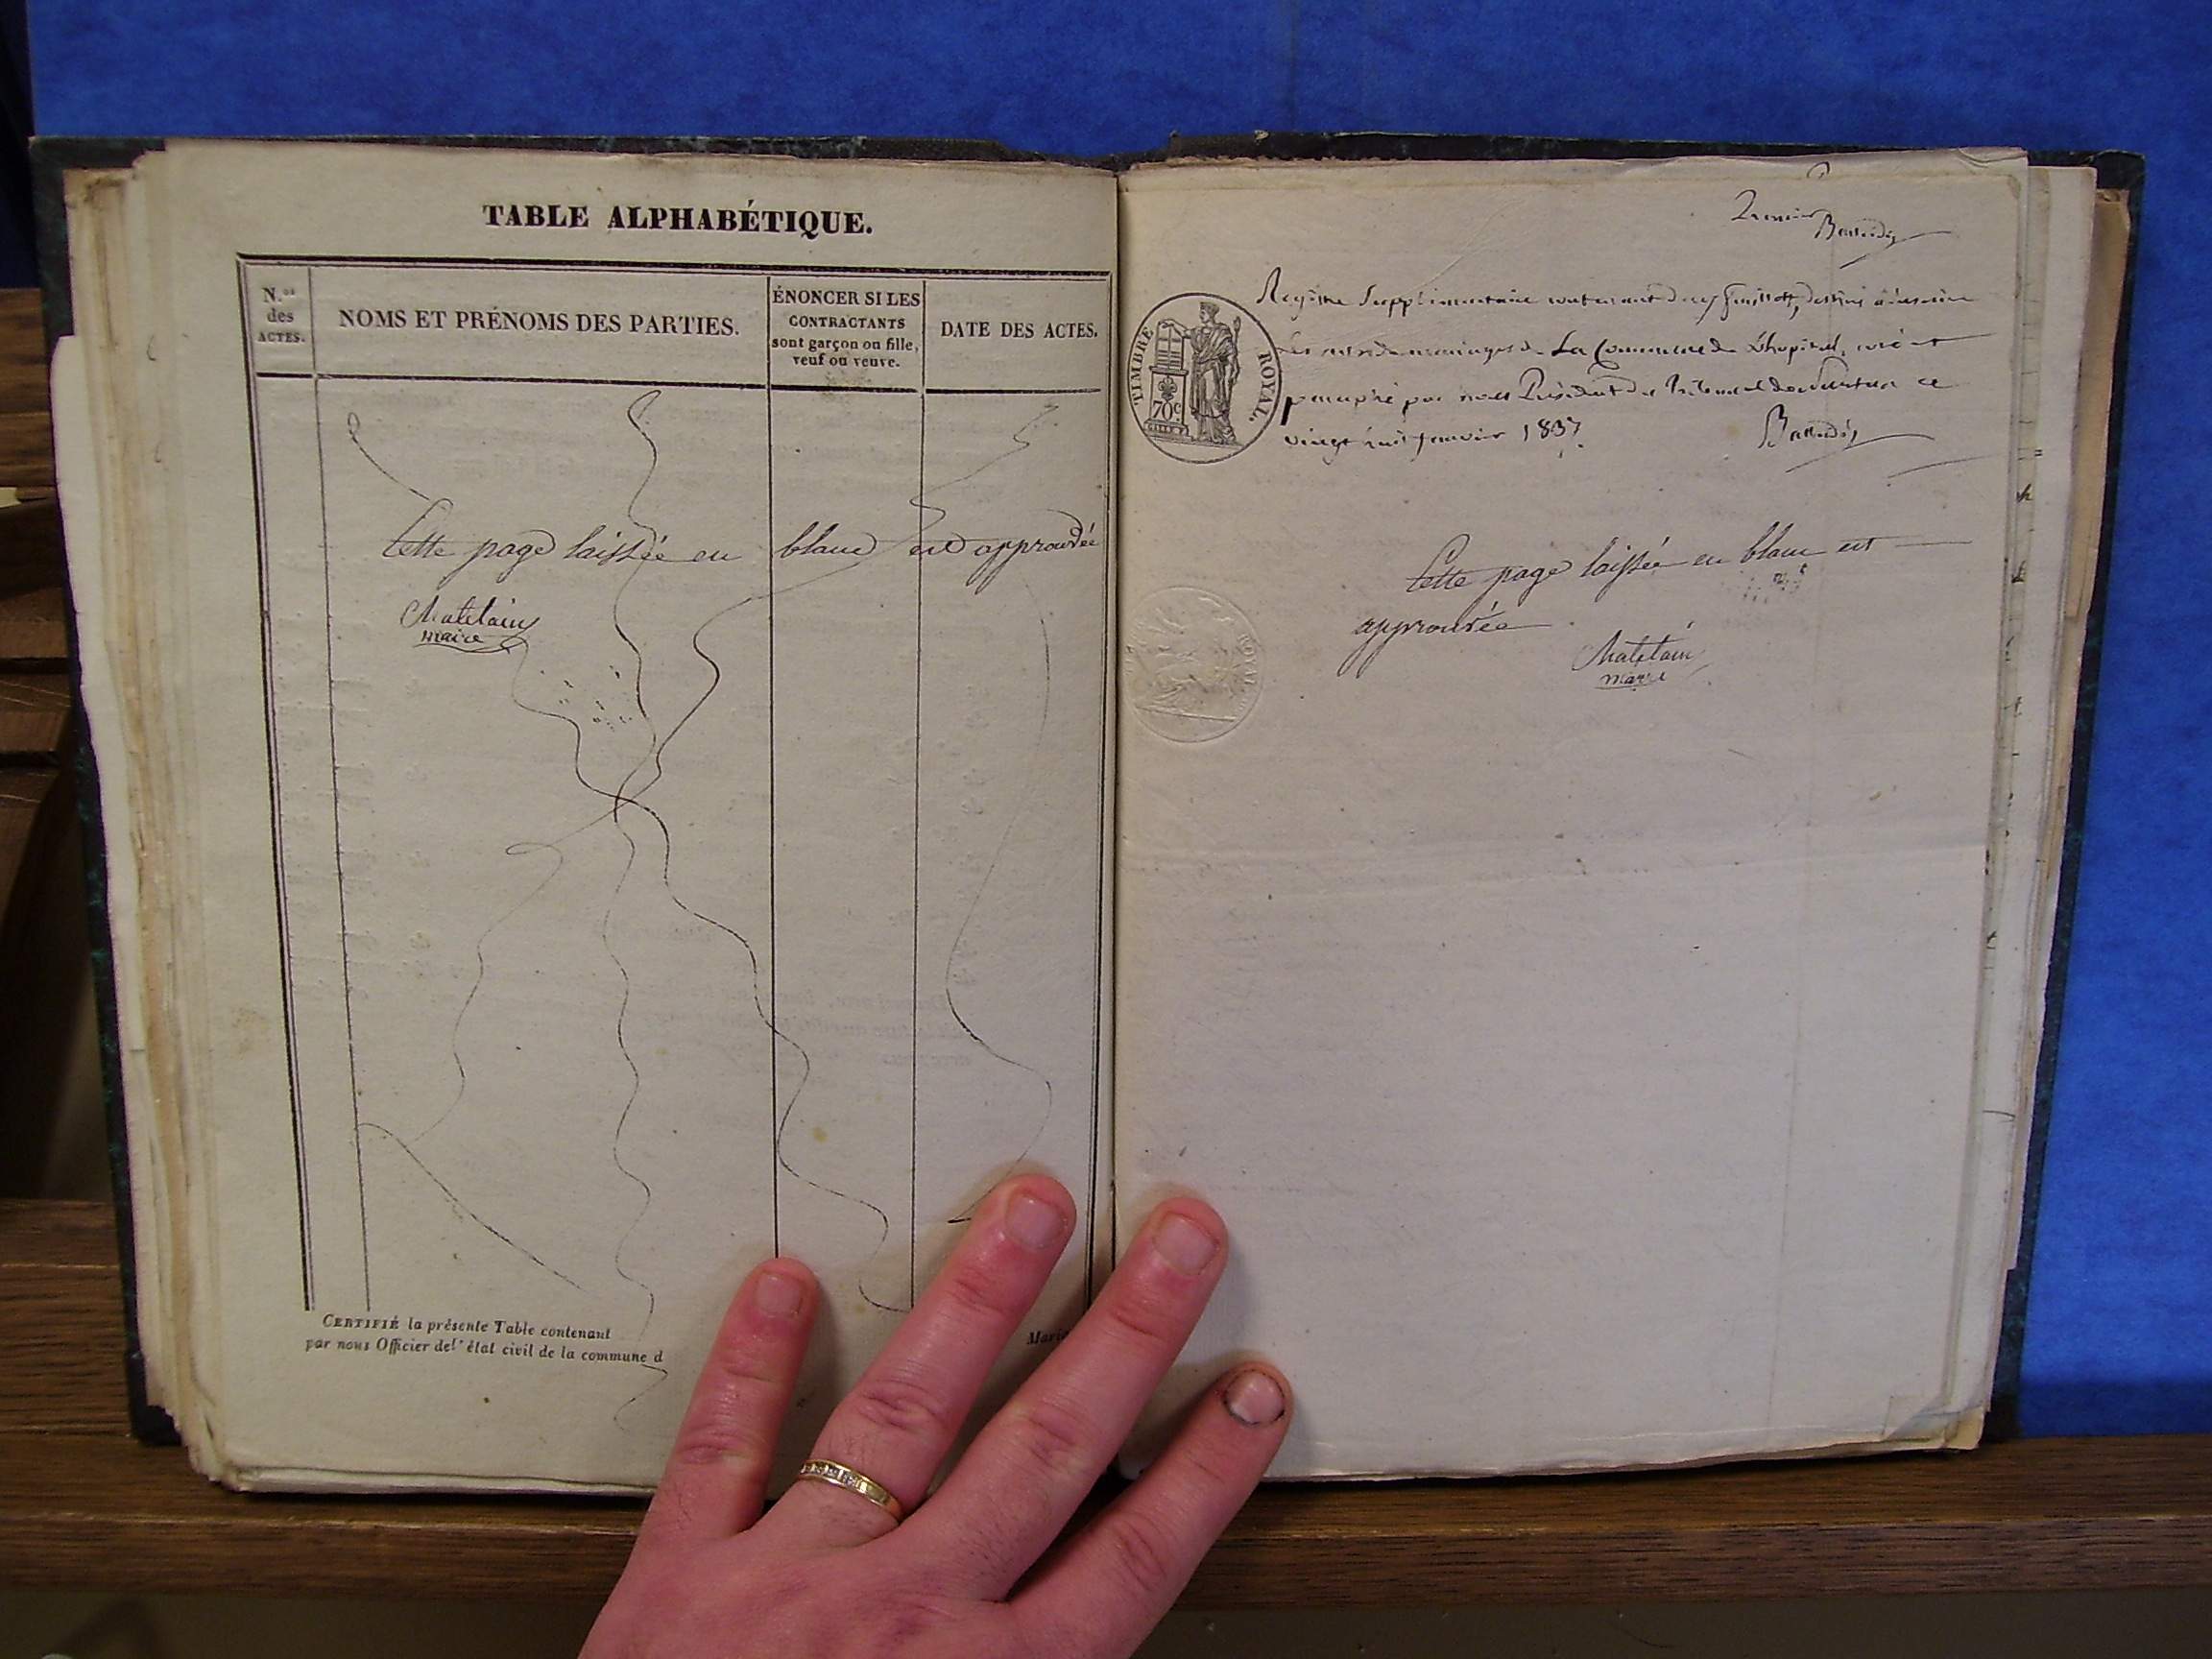 TABLE ALPHABÉTIQUE.
N.os
des
ACTES.
NOMS ET PRÉNOMS DES PARTIES.
ÉNONCER SI LES
CONTRACTANTS
sont garçon ou fille,
veuf ou veuve.
DATE DES ACTES.
Cette page laissée en blanc est approuvée
Chatelain
maire
CERTIFIÉ la présente Table contenant
par nous Officier de l'état civil de la commune d
Maria
Premier
Registre Supplémentaire contenant feuillets, destiné à inscrire
les actes de mariages de La Commune de Lhopital, coté et
paraphé par nous Président du Tribunal de ce
vingt huit Janvier 1837.
TIMBRE ROYAL.
70c.
Cette page laissée en blanc est
approuvée
Chatelain
maire